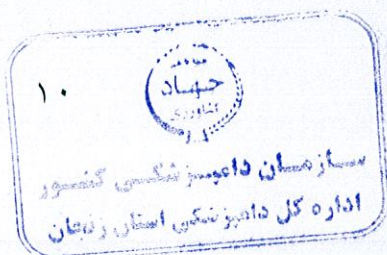 ۱۰
جهاد
کشاورزی
سازمان دامپزشکی کشور
اداره کل دامپزشکی استان زنجان